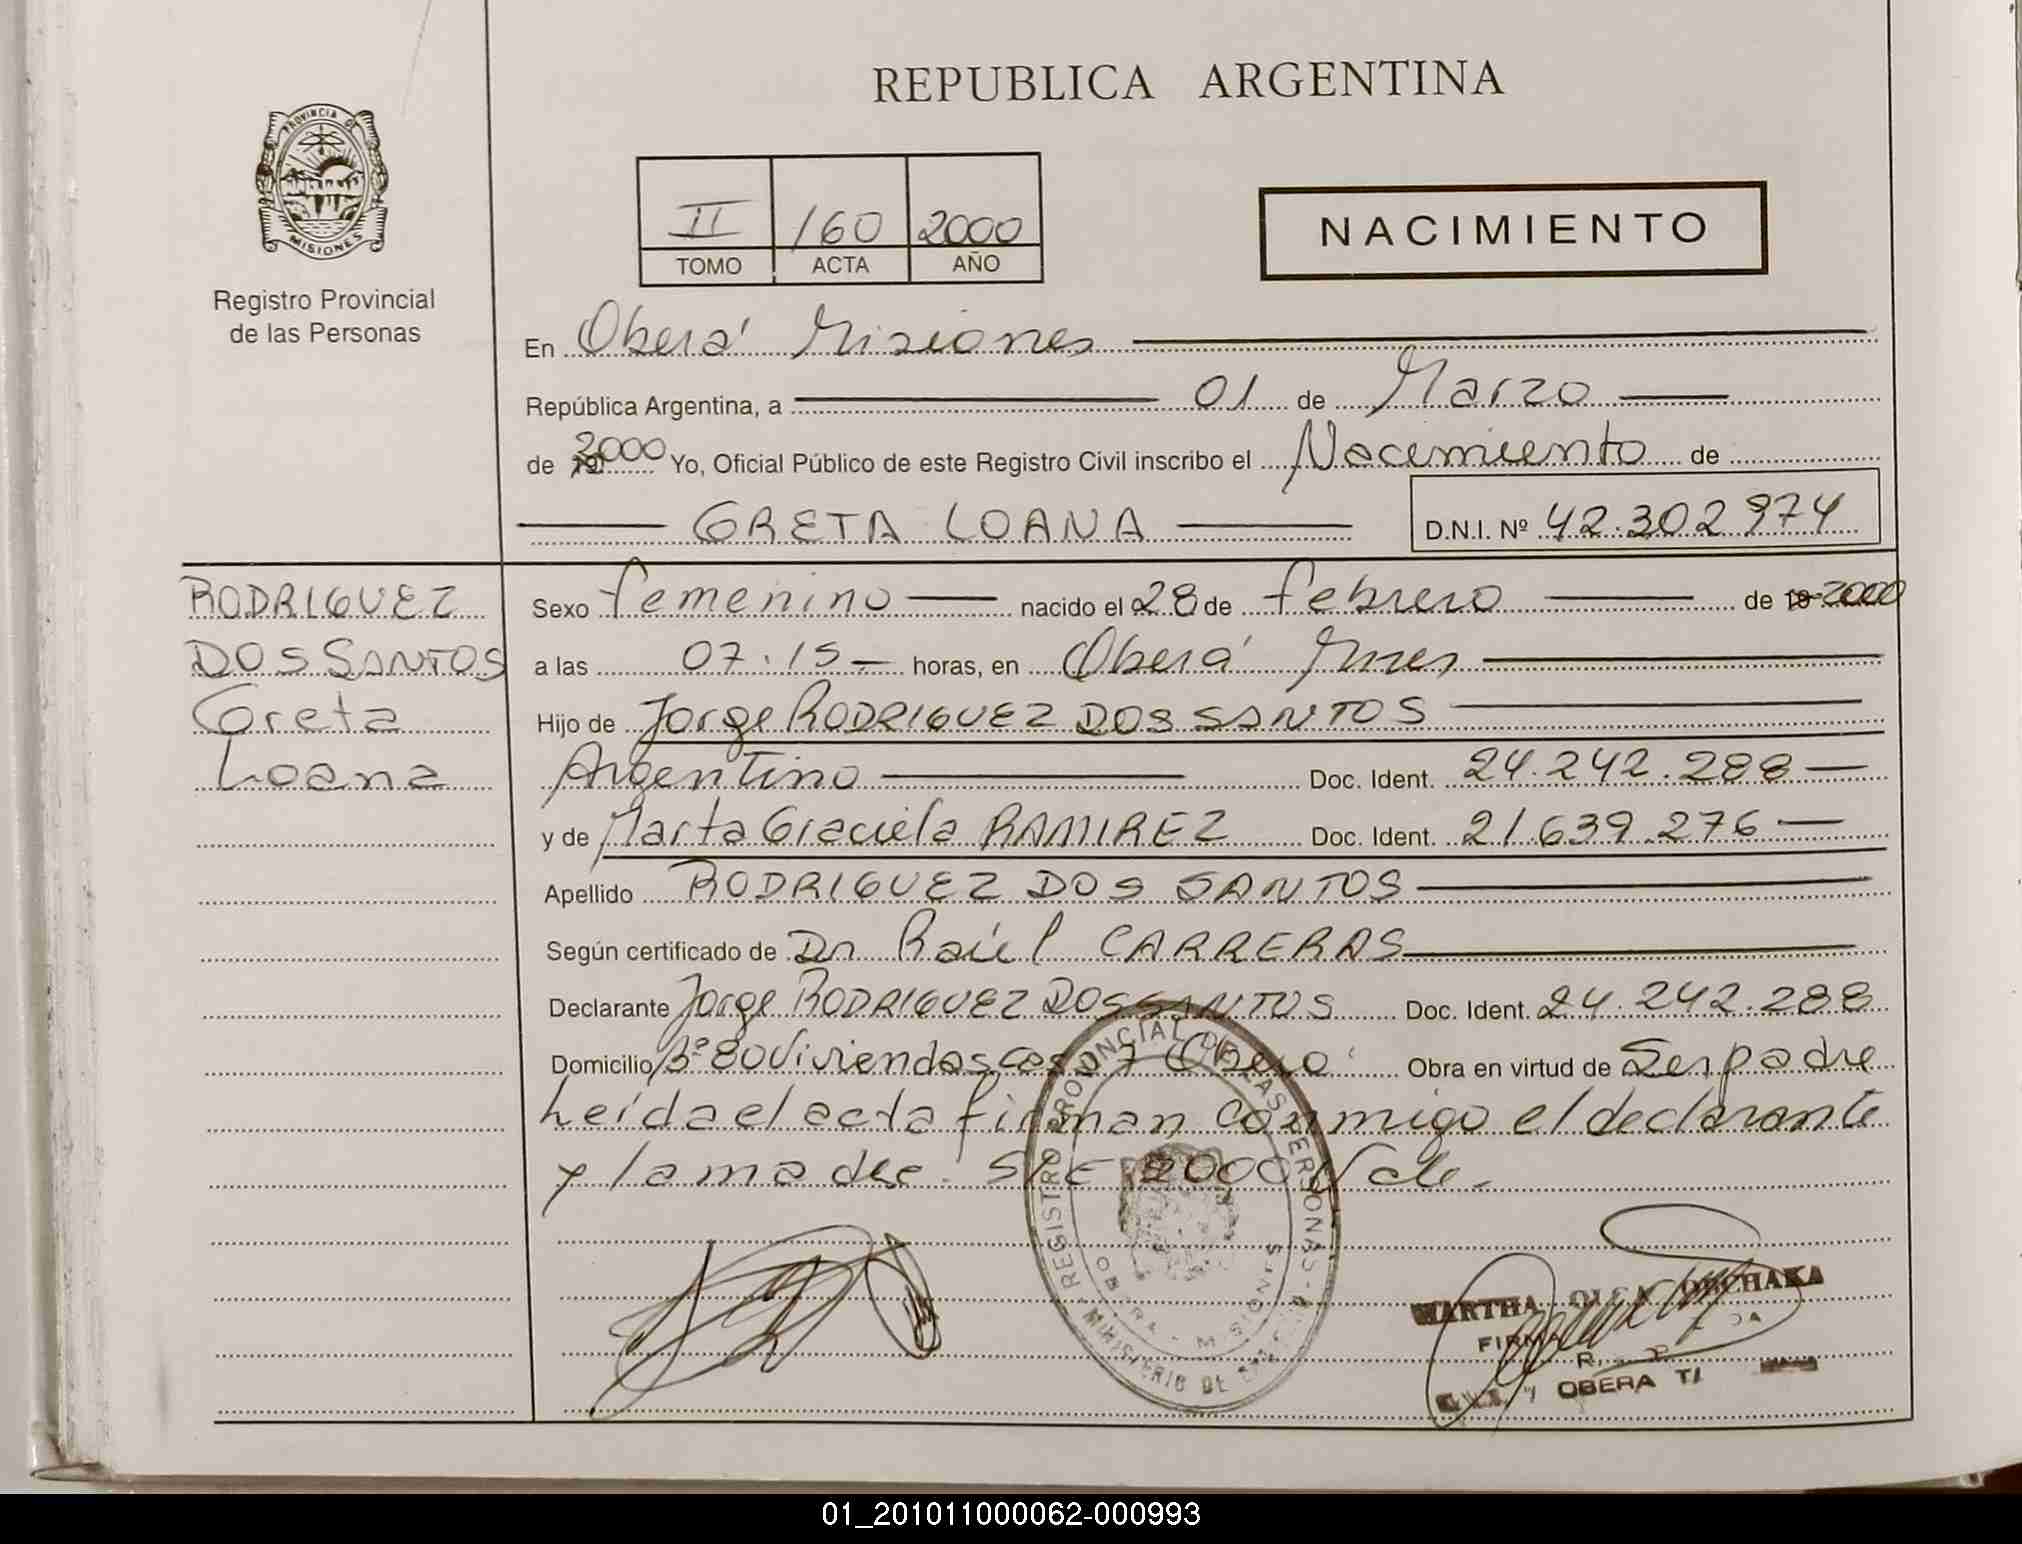 PROVINCIA DE
MISIONES
Registro Provincial
de las Personas
REPUBLICA ARGENTINA
II 160 2000
TOMO ACTA AÑO
NACIMIENTO
En Oberá Misiones
República Argentina, a 01 de Marzo
de 19 2000 Yo, Oficial Público de este Registro Civil inscribo el Nacimiento de
GRETA LOANA D.N.I. Nº 42.302.974
RODRIGUEZ
DOS SANTOS
Greta
Loana
Sexo femenino nacido el 28 de febrero de 19 2000
a las 07.15 horas, en Oberá Mnes
Hijo de Jorge RODRIGUEZ DOS SANTOS
Argentino Doc. Ident. 24.242.288
y de Marta Graciela RAMIREZ Doc. Ident. 21.639.276
Apellido RODRIGUEZ DOS SANTOS
Según certificado de Dr Raúl CARRERAS
Declarante Jorge RODRIGUEZ DOS SANTOS Doc. Ident. 24.242.288
Domicilio Bº 80 Viviendas cas 7 Oberá Obra en virtud de Ser padre
Leída el acta firman conmigo el declarante
y la madre. S/E 2000 Vale.
REGISTRO PROVINCIAL DE LAS PERSONAS
OBERA - MISIONES
MINISTERIO DE
MARTHA OLGA
FIRMA
OBERA
01_201011000062-000993